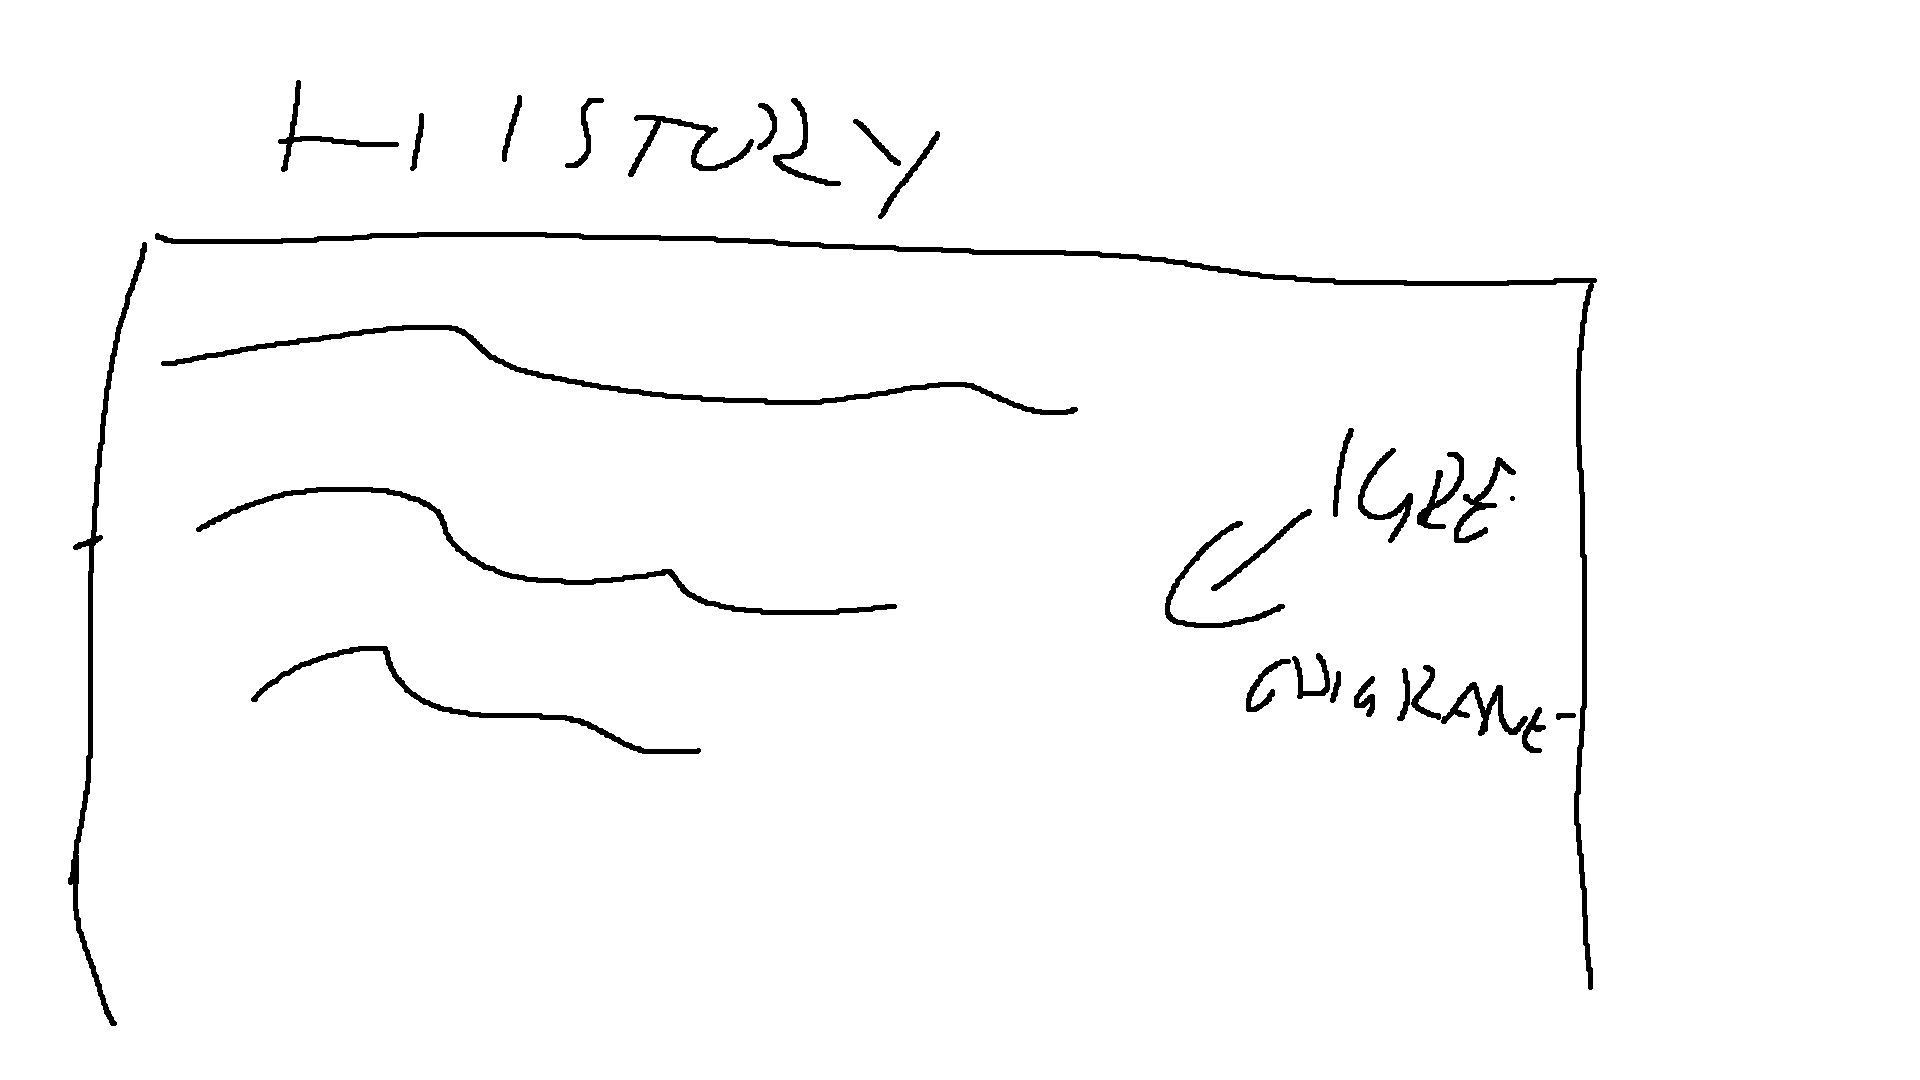 HISTORY
IGRE
ONIGRANE